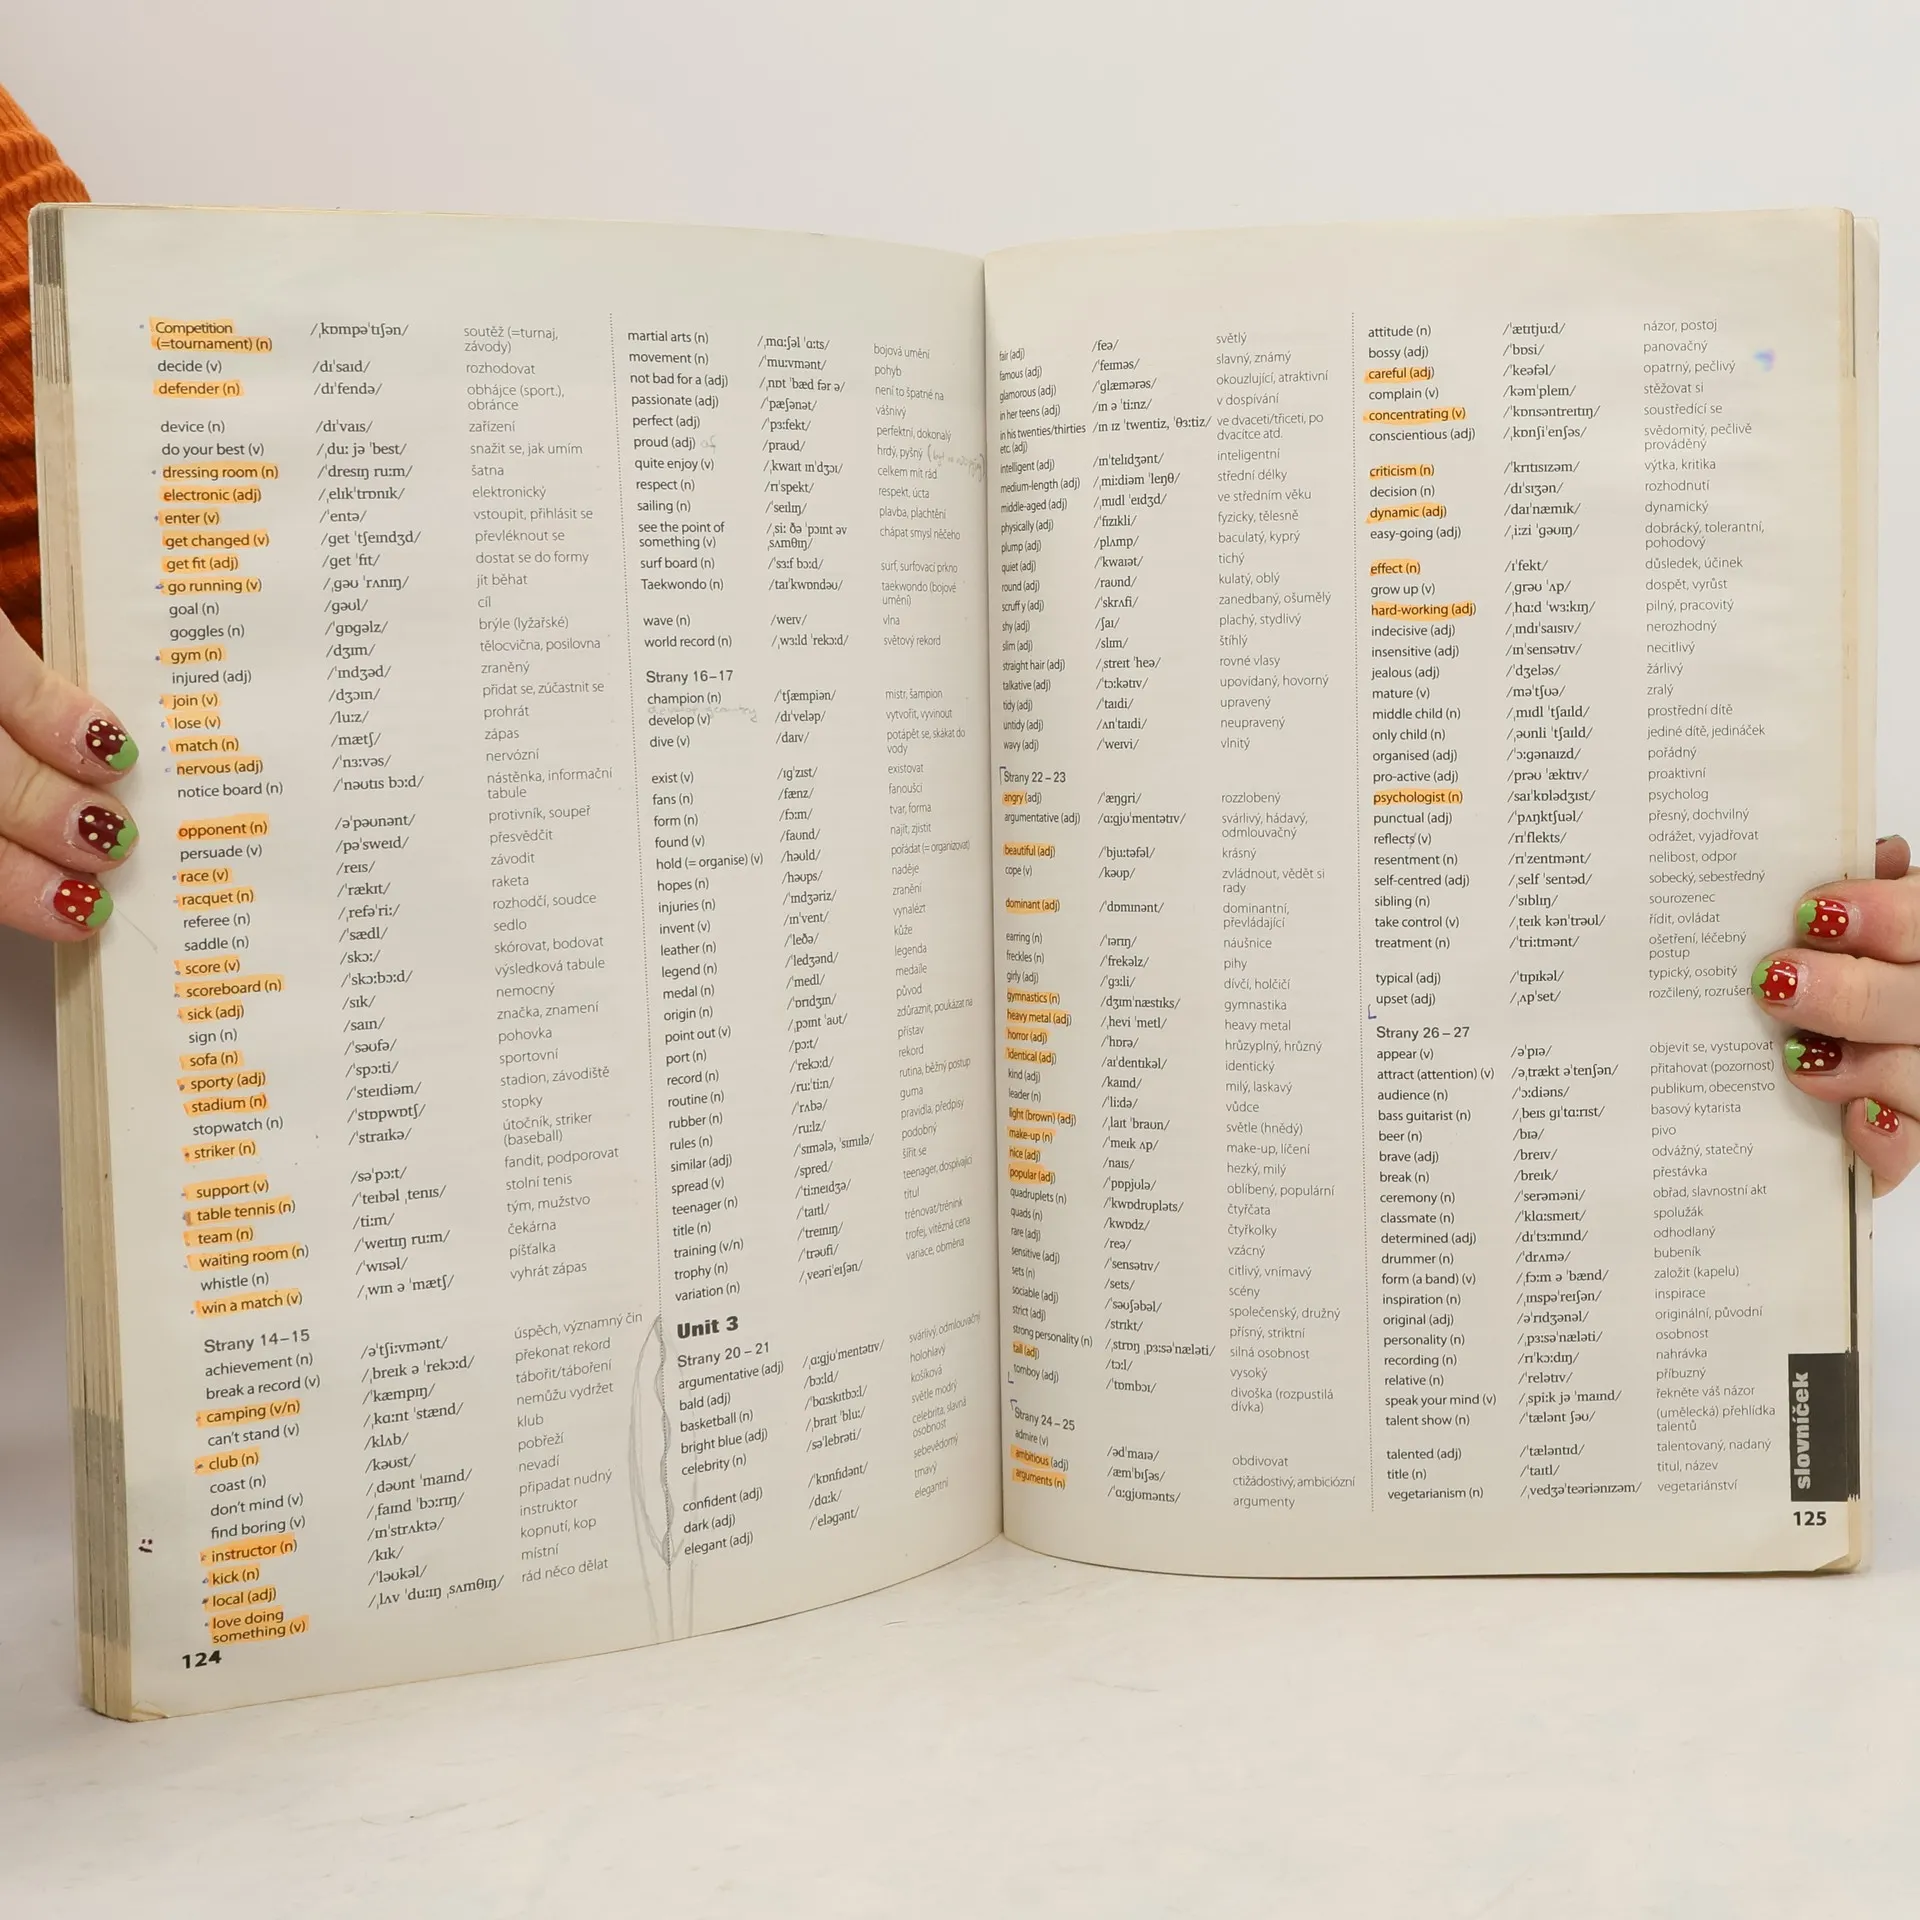 Competition /ˌkɒmpəˈtɪʃən/ soutěž (=turnaj,
(=tournament) (n) závody)
decide (v) /dɪˈsaɪd/ rozhodovat
defender (n) /dɪˈfendə/ obhájce (sport.),
obránce
device (n) /dɪˈvaɪs/ zařízení
do your best (v) /ˌduː jə ˈbest/ snažit se, jak umím
dressing room (n) /ˈdresɪŋ ruːm/ šatna
electronic (adj) /ˌelɪkˈtrɒnɪk/ elektronický
enter (v) /ˈentə/ vstoupit, přihlásit se
get changed (v) /get ˈtʃeɪndʒd/ převléknout se
get fit (adj) /get ˈfɪt/ dostat se do formy
go running (v) /ˌgəʊ ˈrʌnɪŋ/ jít běhat
goal (n) /gəʊl/ cíl
goggles (n) /ˈgɒgəlz/ brýle (lyžařské)
gym (n) /dʒɪm/ tělocvična, posilovna
injured (adj) /ˈɪndʒəd/ zraněný
join (v) /dʒɔɪn/ přidat se, zúčastnit se
lose (v) /luːz/ prohrát
match (n) /mætʃ/ zápas
nervous (adj) /ˈnɜːvəs/ nervózní
notice board (n) /ˈnəʊtɪs bɔːd/ nástěnka, informační
tabule
opponent (n) /əˈpəʊnənt/ protivník, soupeř
persuade (v) /pəˈsweɪd/ přesvědčit
race (v) /reɪs/ závodit
racquet (n) /ˈrækɪt/ raketa
referee (n) /ˌrefəˈriː/ rozhodčí, soudce
saddle (n) /ˈsædl/ sedlo
score (v) /skɔː/ skórovat, bodovat
scoreboard (n) /ˈskɔːbɔːd/ výsledková tabule
sick (adj) /sɪk/ nemocný
sign (n) /saɪn/ značka, znamení
sofa (n) /ˈsəʊfə/ pohovka
sporty (adj) /ˈspɔːti/ sportovní
stadium (n) /ˈsteɪdiəm/ stadion, závodiště
stopwatch (n) /ˈstɒpwɒtʃ/ stopky
striker (n) /ˈstraɪkə/ útočník, striker
(baseball)
support (v) /səˈpɔːt/ fandit, podporovat
table tennis (n) /ˈteɪbəl ˌtenɪs/ stolní tenis
team (n) /tiːm/ tým, mužstvo
waiting room (n) /ˈweɪtɪŋ ruːm/ čekárna
whistle (n) /ˈwɪsəl/ píšťalka
win a match (v) /ˌwɪn ə ˈmætʃ/ vyhrát zápas
Strany 14–15
achievement (n) /əˈtʃiːvmənt/ úspěch, významný čin
break a record (v) /ˌbreɪk ə ˈrekɔːd/ překonat rekord
camping (v/n) /ˈkæmpɪŋ/ tábořit/táboření
can't stand (v) /ˌkɑːnt ˈstænd/ nemůžu vydržet
club (n) /klʌb/ klub
coast (n) /kəʊst/ pobřeží
don't mind (v) /ˌdəʊnt ˈmaɪnd/ nevadí
find boring (v) /ˌfaɪnd ˈbɔːrɪŋ/ připadat nudný
instructor (n) /ɪnˈstrʌktə/ instruktor
kick (n) /kɪk/ kopnutí, kop
local (adj) /ˈləʊkəl/ místní
love doing /ˌlʌv ˈduːɪŋ ˌsʌmθɪŋ/ rád něco dělat
something (v)
124
martial arts (n) /ˌmɑːʃəl ˈɑːts/ bojová umění
movement (n) /ˈmuːvmənt/ pohyb
not bad for a (adj) /ˌnɒt ˈbæd fər ə/ není to špatné na
passionate (adj) /ˈpæʃənət/ vášnivý
perfect (adj) /ˈpɜːfekt/ perfektní, dokonalý
proud (adj) of /praʊd/ hrdý, pyšný
quite enjoy (v) /ˌkwaɪt ɪnˈdʒɔɪ/ celkem mít rád
respect (n) /rɪˈspekt/ respekt, úcta
sailing (n) /ˈseɪlɪŋ/ plavba, plachtění
see the point of /ˌsiː ðə ˈpɔɪnt əv chápat smysl něčeho
something (v) ˌsʌmθɪŋ/
surf board (n) /ˈsɜːf bɔːd/ surf, surfovací prkno
Taekwondo (n) /taɪˈkwɒndəʊ/ taekwondo (bojové
umění)
wave (n) /weɪv/ vlna
world record (n) /ˌwɜːld ˈrekɔːd/ světový rekord
Strany 16–17
champion (n) /ˈtʃæmpiən/ mistr, šampion
develop (v) /dɪˈveləp/ vytvořit, vyvinout
dive (v) /daɪv/ potápět se, skákat do
vody
exist (v) /ɪgˈzɪst/ existovat
fans (n) /fænz/ fanoušci
form (n) /fɔːm/ tvar, forma
found (v) /faʊnd/ najít, zjistit
hold (= organise) (v) /həʊld/ pořádat (= organizovat)
hopes (n) /həʊps/ naděje
injuries (n) /ˈɪndʒəriz/ zranění
invent (v) /ɪnˈvent/ vynalézt
leather (n) /ˈleðə/ kůže
legend (n) /ˈledʒənd/ legenda
medal (n) /ˈmedl/ medaile
origin (n) /ˈɒrɪdʒɪn/ původ
point out (v) /ˌpɔɪnt ˈaʊt/ zdůraznit, poukázat na
port (n) /pɔːt/ přístav
record (n) /ˈrekɔːd/ rekord
routine (n) /ruːˈtiːn/ rutina, běžný postup
rubber (n) /ˈrʌbə/ guma
rules (n) /ruːlz/ pravidla, předpisy
similar (adj) /ˈsɪmələ, ˈsɪmɪlə/ podobný
spread (v) /spred/ šířit se
teenager (n) /ˈtiːneɪdʒə/ teenager, dospívající
title (n) /ˈtaɪtl/ titul
training (v/n) /ˈtreɪnɪŋ/ trénovat/trénink
trophy (n) /ˈtrəʊfi/ trofej, vítězná cena
variation (n) /ˌveəriˈeɪʃən/ variace, obměna
Unit 3
Strany 20 – 21
argumentative (adj) /ˌɑːgjʊˈmentətɪv/ svárlivý, odmlouvačný
bald (adj) /bɔːld/ holohlavý
basketball (n) /ˈbɑːskɪtbɔːl/ košíková
bright blue (adj) /ˌbraɪt ˈbluː/ světle modrý
celebrity (n) /səˈlebrəti/ celebrita, slavná
osobnost
confident (adj) /ˈkɒnfɪdənt/ sebevědomý
dark (adj) /dɑːk/ tmavý
elegant (adj) /ˈeləgənt/ elegantní
fair (adj) /feə/ světlý
famous (adj) /ˈfeɪməs/ slavný, známý
glamorous (adj) /ˈglæmərəs/ okouzlující, atraktivní
in her teens (adj) /ɪn ə ˈtiːnz/ v dospívání
in his twenties/thirties /ɪn ɪz ˈtwentiz, ˈθɜːtiz/ ve dvaceti/třiceti, po
etc. (adj) dvacítce atd.
intelligent (adj) /ɪnˈtelɪdʒənt/ inteligentní
medium-length (adj) /ˌmiːdiəm ˈleŋθ/ střední délky
middle-aged (adj) /ˌmɪdl ˈeɪdʒd/ ve středním věku
physically (adj) /ˈfɪzɪkli/ fyzicky, tělesně
plump (adj) /plʌmp/ baculatý, kyprý
quiet (adj) /ˈkwaɪət/ tichý
round (adj) /raʊnd/ kulatý, oblý
scruffy (adj) /ˈskrʌfi/ zanedbaný, ošumělý
shy (adj) /ʃaɪ/ plachý, stydlivý
slim (adj) /slɪm/ štíhlý
straight hair (adj) /ˌstreɪt ˈheə/ rovné vlasy
talkative (adj) /ˈtɔːkətɪv/ upovídaný, hovorný
tidy (adj) /ˈtaɪdi/ upravený
untidy (adj) /ʌnˈtaɪdi/ neupravený
wavy (adj) /ˈweɪvi/ vlnitý
Strany 22 – 23
angry (adj) /ˈæŋgri/ rozzlobený
argumentative (adj) /ɑːgjʊˈmentətɪv/ svárlivý, hádavý,
odmlouvačný
beautiful (adj) /ˈbjuːtəfəl/ krásný
cope (v) /kəʊp/ zvládnout, vědět si
rady
dominant (adj) /ˈdɒmɪnənt/ dominantní,
převládající
earring (n) /ˈɪərɪŋ/ náušnice
freckles (n) /ˈfrekəlz/ pihy
girly (adj) /ˈgɜːli/ dívčí, holčičí
gymnastics (n) /dʒɪmˈnæstɪks/ gymnastika
heavy metal (adj) /ˌhevi ˈmetl/ heavy metal
horror (adj) /ˈhɒrə/ hrůzyplný, hrůzný
identical (adj) /aɪˈdentɪkəl/ identický
kind (adj) /kaɪnd/ milý, laskavý
leader (n) /ˈliːdə/ vůdce
light (brown) (adj) /ˌlaɪt ˈbraʊn/ světle (hnědý)
make-up (n) /ˈmeɪk ʌp/ make-up, líčení
nice (adj) /naɪs/ hezký, milý
popular (adj) /ˈpɒpjʊlə/ oblíbený, populární
quadruplets (n) /ˈkwɒdrʊpləts/ čtyřčata
quads (n) /kwɒdz/ čtyřkolky
rare (adj) /reə/ vzácný
sensitive (adj) /ˈsensətɪv/ citlivý, vnímavý
sets (n) /sets/ scény
sociable (adj) /ˈsəʊʃəbəl/ společenský, družný
strict (adj) /strɪkt/ přísný, striktní
strong personality (n) /ˌstrɒŋ ˌpɜːsəˈnæləti/ silná osobnost
tall (adj) /tɔːl/ vysoký
tomboy (adj) /ˈtɒmbɔɪ/ divoška (rozpustilá
dívka)
Strany 24 – 25
admire (v) /ədˈmaɪə/ obdivovat
ambitious (adj) /æmˈbɪʃəs/ ctižádostivý, ambiciózní
arguments (n) /ˈɑːgjʊmənts/ argumenty
attitude (n) /ˈætɪtjuːd/ názor, postoj
bossy (adj) /ˈbɒsi/ panovačný
careful (adj) /ˈkeəfəl/ opatrný, pečlivý
complain (v) /kəmˈpleɪn/ stěžovat si
concentrating (v) /ˈkɒnsəntreɪtɪŋ/ soustředící se
conscientious (adj) /ˌkɒnʃiˈenʃəs/ svědomitý, pečlivě
prováděný
criticism (n) /ˈkrɪtɪsɪzəm/ výtka, kritika
decision (n) /dɪˈsɪʒən/ rozhodnutí
dynamic (adj) /daɪˈnæmɪk/ dynamický
easy-going (adj) /ˌiːzi ˈgəʊɪŋ/ dobrácký, tolerantní,
pohodový
effect (n) /ɪˈfekt/ důsledek, účinek
grow up (v) /ˌgrəʊ ˈʌp/ dospět, vyrůst
hard-working (adj) /ˌhɑːd ˈwɜːkɪŋ/ pilný, pracovitý
indecisive (adj) /ˌɪndɪˈsaɪsɪv/ nerozhodný
insensitive (adj) /ɪnˈsensətɪv/ necitlivý
jealous (adj) /ˈdʒeləs/ žárlivý
mature (v) /məˈtʃʊə/ zralý
middle child (n) /ˌmɪdl ˈtʃaɪld/ prostřední dítě
only child (n) /ˌəʊnli ˈtʃaɪld/ jediné dítě, jedináček
organised (adj) /ˈɔːgənaɪzd/ pořádný
pro-active (adj) /prəʊ ˈæktɪv/ proaktivní
psychologist (n) /saɪˈkɒlədʒɪst/ psycholog
punctual (adj) /ˈpʌŋktʃuəl/ přesný, dochvilný
reflects (v) /rɪˈflekts/ odrážet, vyjadřovat
resentment (n) /rɪˈzentmənt/ nelibost, odpor
self-centred (adj) /ˌself ˈsentəd/ sobecký, sebestředný
sibling (n) /ˈsɪblɪŋ/ sourozenec
take control (v) /ˌteɪk kənˈtrəʊl/ řídit, ovládat
treatment (n) /ˈtriːtmənt/ ošetření, léčebný
postup
typical (adj) /ˈtɪpɪkəl/ typický, osobitý
upset (adj) /ˌʌpˈset/ rozčilený,
Strany 26 – 27
appear (v) /əˈpɪə/ objevit se, vystupovat
attract (attention) (v) /əˌtrækt əˈtenʃən/ přitahovat (pozornost)
audience (n) /ˈɔːdiəns/ publikum, obecenstvo
bass guitarist (n) /ˌbeɪs gɪˈtɑːrɪst/ basový kytarista
beer (n) /bɪə/ pivo
brave (adj) /breɪv/ odvážný, statečný
break (n) /breɪk/ přestávka
ceremony (n) /ˈserəməni/ obřad, slavnostní akt
classmate (n) /ˈklɑːsmeɪt/ spolužák
determined (adj) /dɪˈtɜːmɪnd/ odhodlaný
drummer (n) /ˈdrʌmə/ bubeník
form (a band) (v) /ˌfɔːm ə ˈbænd/ založit (kapelu)
inspiration (n) /ˌɪnspəˈreɪʃən/ inspirace
original (adj) /əˈrɪdʒənəl/ originální, původní
personality (n) /ˌpɜːsəˈnæləti/ osobnost
recording (n) /rɪˈkɔːdɪŋ/ nahrávka
relative (n) /ˈrelətɪv/ příbuzný
speak your mind (v) /ˌspiːk jə ˈmaɪnd/ řekněte váš názor
talent show (n) /ˈtælənt ʃəʊ/ (umělecká) přehlídka
talentů
talented (adj) /ˈtæləntɪd/ talentovaný, nadaný
title (n) /ˈtaɪtl/ titul, název
vegetarianism (n) /ˌvedʒəˈteəriənɪzəm/ vegetariánství
slovníček
125